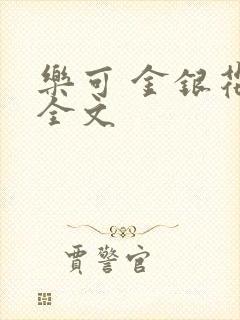 樂可 金銀花
全文
賈警官